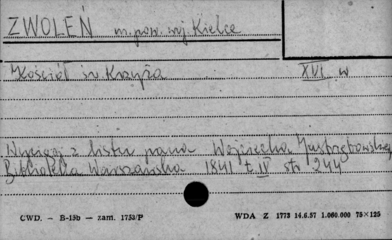 ZWOLEŃ m. pow. woj. Kielce
Kościół św. Krzyża XVI w
Wyciągi z listu pana Wojciecha Jastrzębowskiego
Biblioteka Warszawska 1841 t. IV str 244
CWD. - B-15b - zam. 1753/P WDA Z 1773 14.6.57 1.060.000 75×125